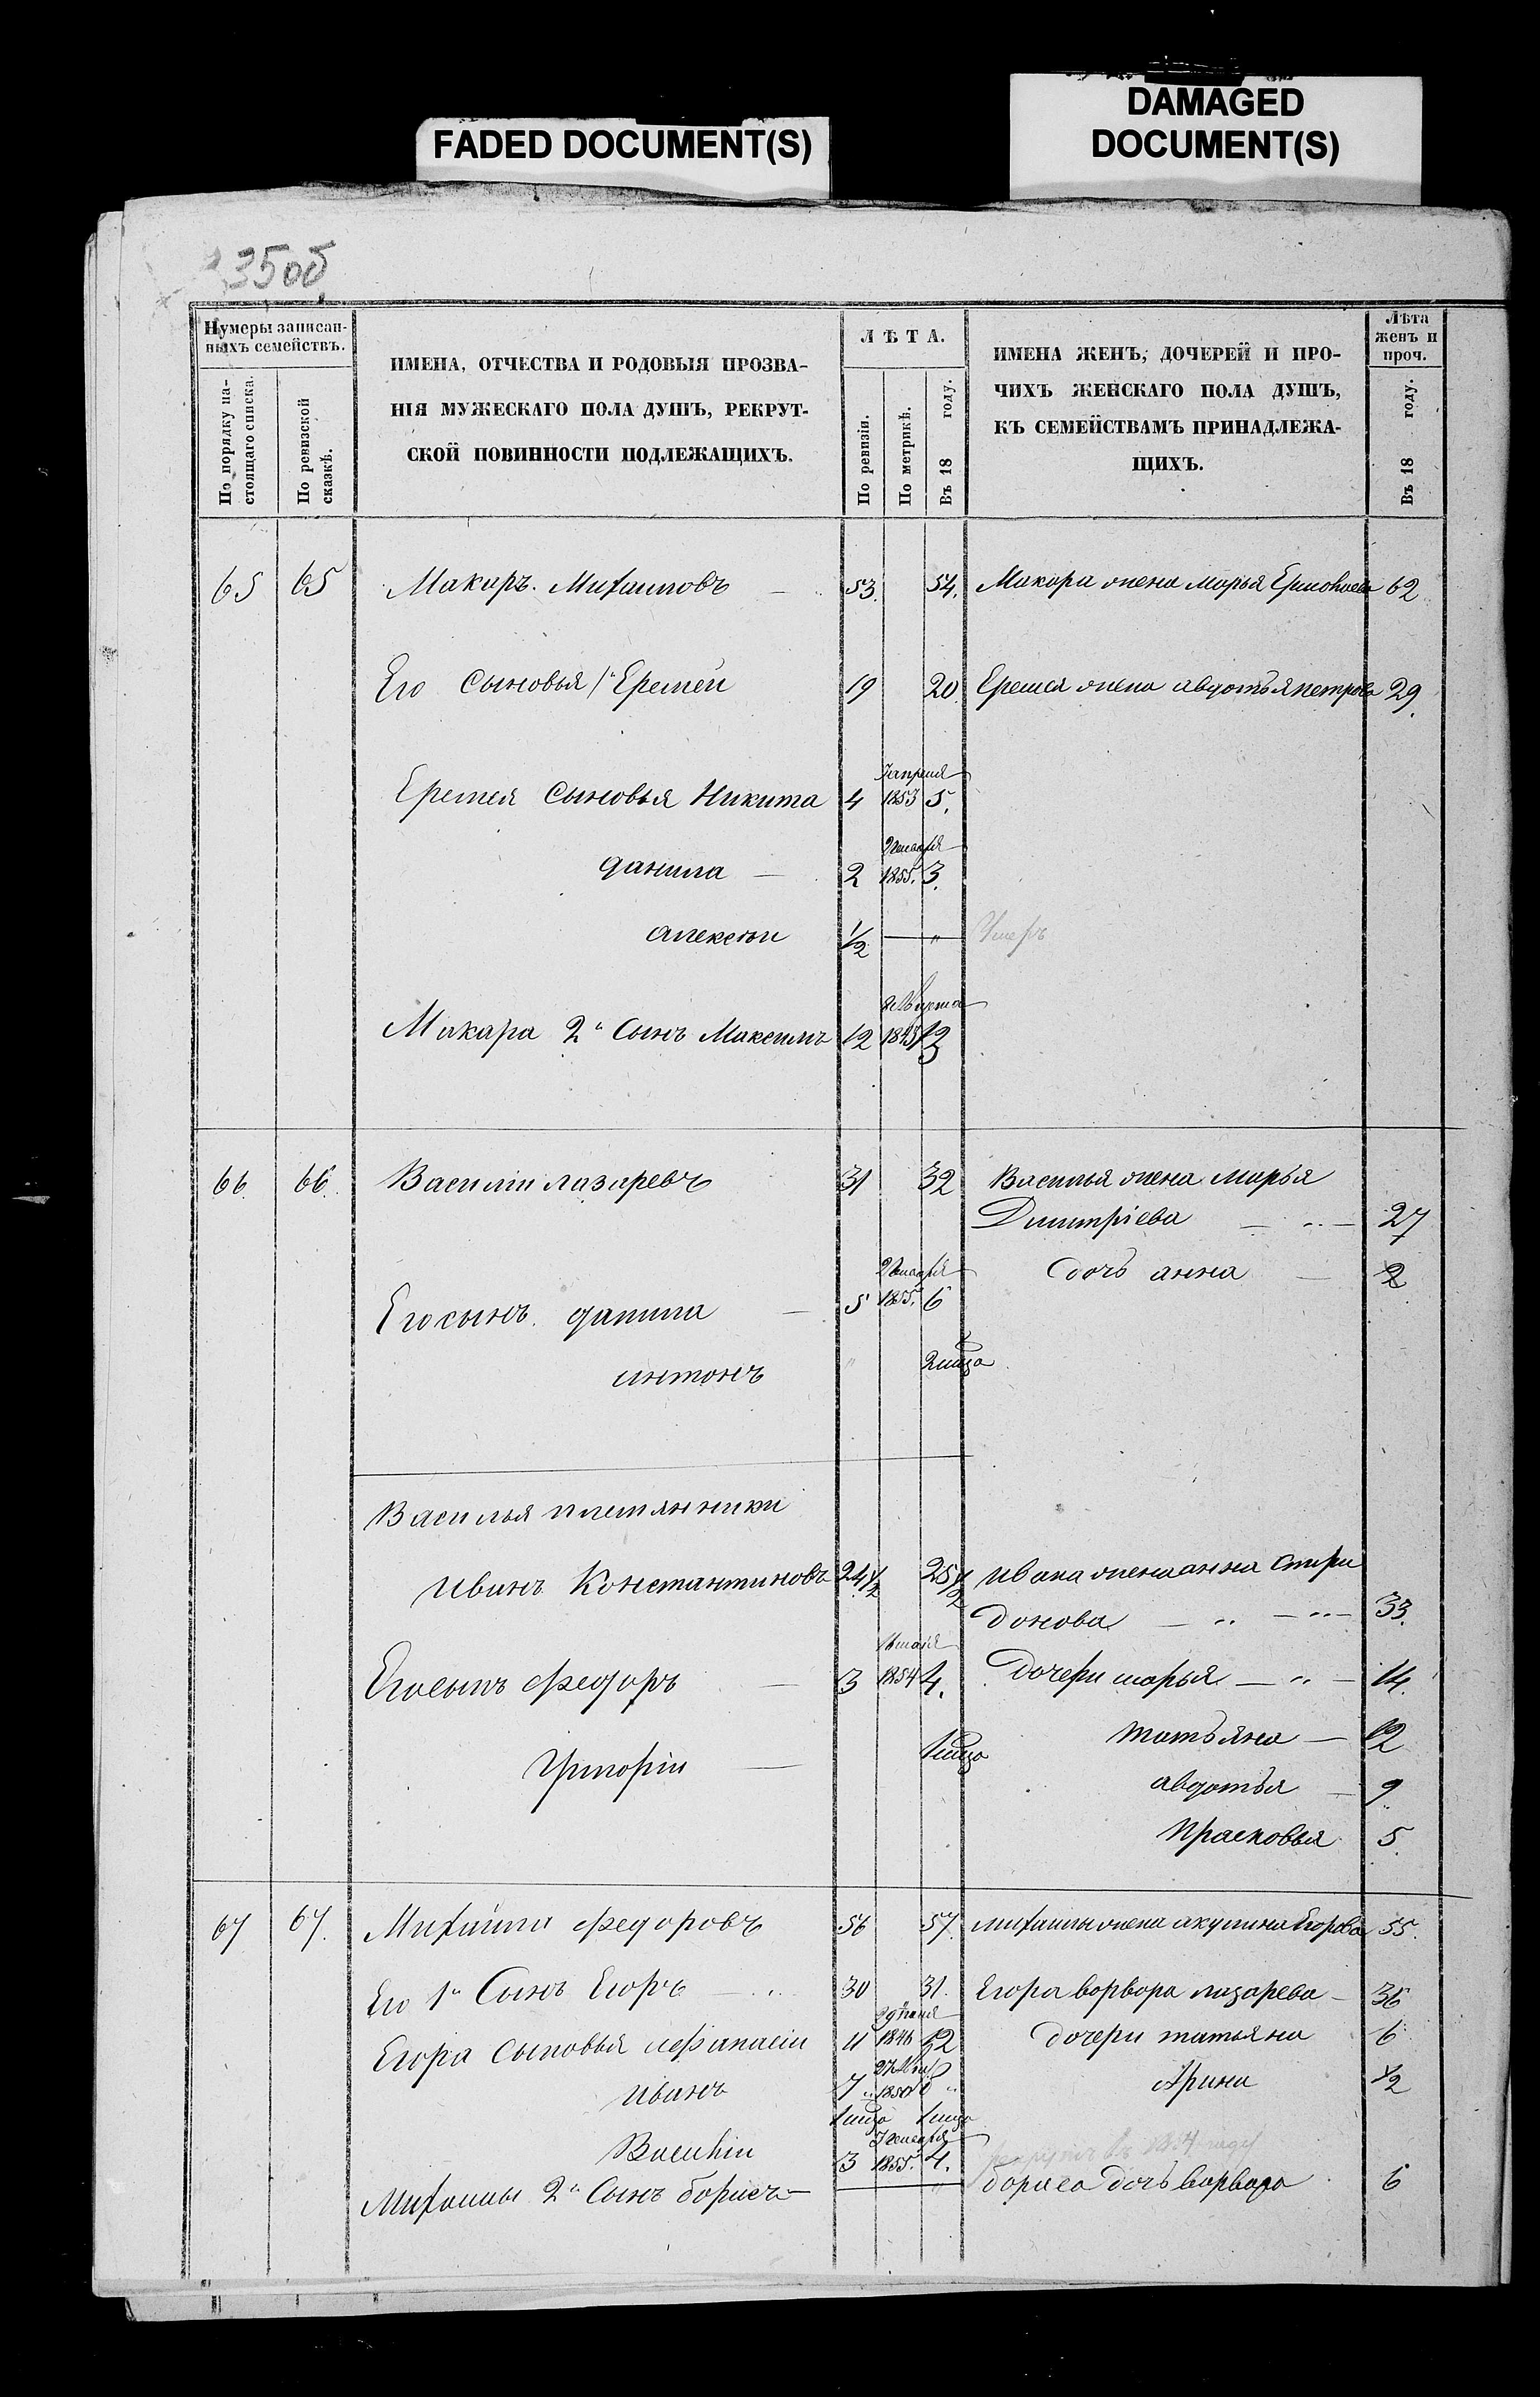 FADED DOCUMENT(S)
DAMAGED
DOCUMENT(S)
35об
Нумеры записан-
ныхъ семействъ.
По порядку на-
стоящаго списка.
По ревизской
сказкѣ.
ИМЕНА, ОТЧЕСТВА И РОДОВЫЯ ПРОЗВА-
НІЯ МУЖЕСКАГО ПОЛА ДУШЪ, РЕКРУТ-
СКОЙ ПОВИННОСТИ ПОДЛЕЖАЩИХЪ.
ЛѢТА.
По ревизіи.
По метрикѣ.
Въ 18 году.
ИМЕНА ЖЕНЪ, ДОЧЕРЕЙ И ПРО-
ЧИХЪ ЖЕНСКАГО ПОЛА ДУШЪ,
КЪ СЕМЕЙСТВАМЪ ПРИНАДЛЕЖА-
ЩИХЪ.
Лѣта
женъ и
проч.
Въ 18 году.
65 65 Макаръ. Михаиловъ 53. 54. Макора жена марья Ермолаева 62
Его сыновья 1й Еремей 19 20 Еремея жена авдотья петрова 29.
7 апреля
Еремея сыновья Никита 4 1853 5.
данила 2 1855. 3.
алексеи 1/2 — " Умеръ
8 Марта
Макара 2й Сынъ Максимъ 12 1845 13
66 66 Василіи лазаревъ 31 32 Василья жена Марья
Дмитріева 27
дочь анна 2
Его сынъ. данила 5 1855. 6
антонъ " 2 мца
Василья племянники
Иванъ Константиновъ 24 1/2 25 1/2 Ивана жена анна Спири
донова 33.
Его сынъ Федоръ 3 1854 4. Дочери марья 14.
Григоріи 1 мца
татьяна 12
авдотья 9
Прасковья 5.
67 67. Михаила Федоровъ 56 57. михаилы жена акулина Егорова 55.
Его 1й Сынъ Егоръ 30 31. Егора ворвора лазарева 36
Егора сыновья Афанасіи 11 1846 12 дочери татьяна 6
27 Мая
Иванъ 7 1850 8 Арина 1/2
1 мца 1 мца
Василіи 3 1855. 4.
Михаилы 2й Сынъ борисъ — бориса дочь ворвара 6